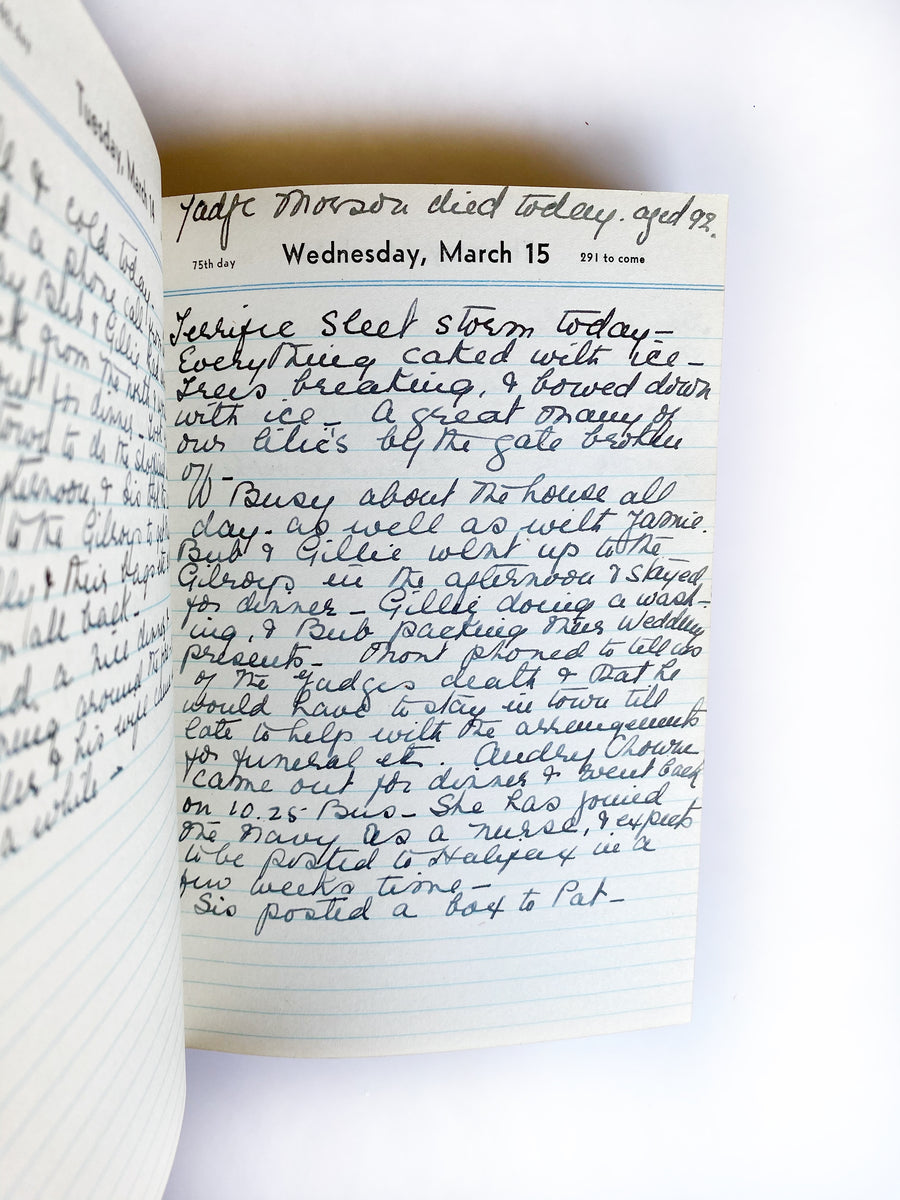 Tuesday, March 14
& cold today –
a phone call from
Bub & Gillie had
from the north &
out for dinner –
to do the shopping
afternoon, & Sis
to the Gilroys to
& their bags etc
all back –
a nice dinner
around
& his wife
a while –
Judge Morson died today. aged 92.
75th day Wednesday, March 15 291 to come
Terrific Sleet storm today –
Everything caked with ice –
Trees breaking, & bowed down
with ice – A great many of
our lilics by the gate broken
off –
Busy about the house all
day. as well as with Jamie.
Bub & Gillie went up to the
Gilroys in the afternoon & stayed
for dinner – Gillie doing a wash-
ing, & Bub packing their Wedding
presents – Mont phoned to tell us
of the Judges death & that he
would have to stay in town till
late to help with the arrangements
for funeral etc. Audry Chown
came out for dinner & went back
on 10.25 Bus – She has joined
the Navy as a nurse, & expects
to be posted to Halifax in a
few weeks time –
Sis posted a box to Pat –